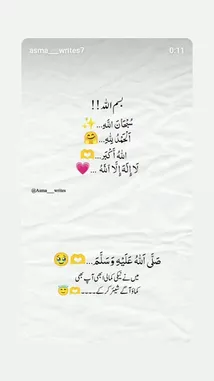 asma__writes7
0:11
بسم اللہ !!
سُبْحَانَ اللّٰهِ...✨
اَلْحَمْدُ لِلّٰهِ...🤗
اللّٰهُ أَكْبَر...🫶
لَا إِلٰهَ إِلَّا اللّٰهُ ...💗
@Asma__writes
صَلَّى اللّٰهُ عَلَيْهِ وَسَلَّمَ...🫶🥹
میں نے نیکی کمالی ابھی آپ بھی
کماؤ آگے شیئر کر کے۔۔۔۔🫶😇